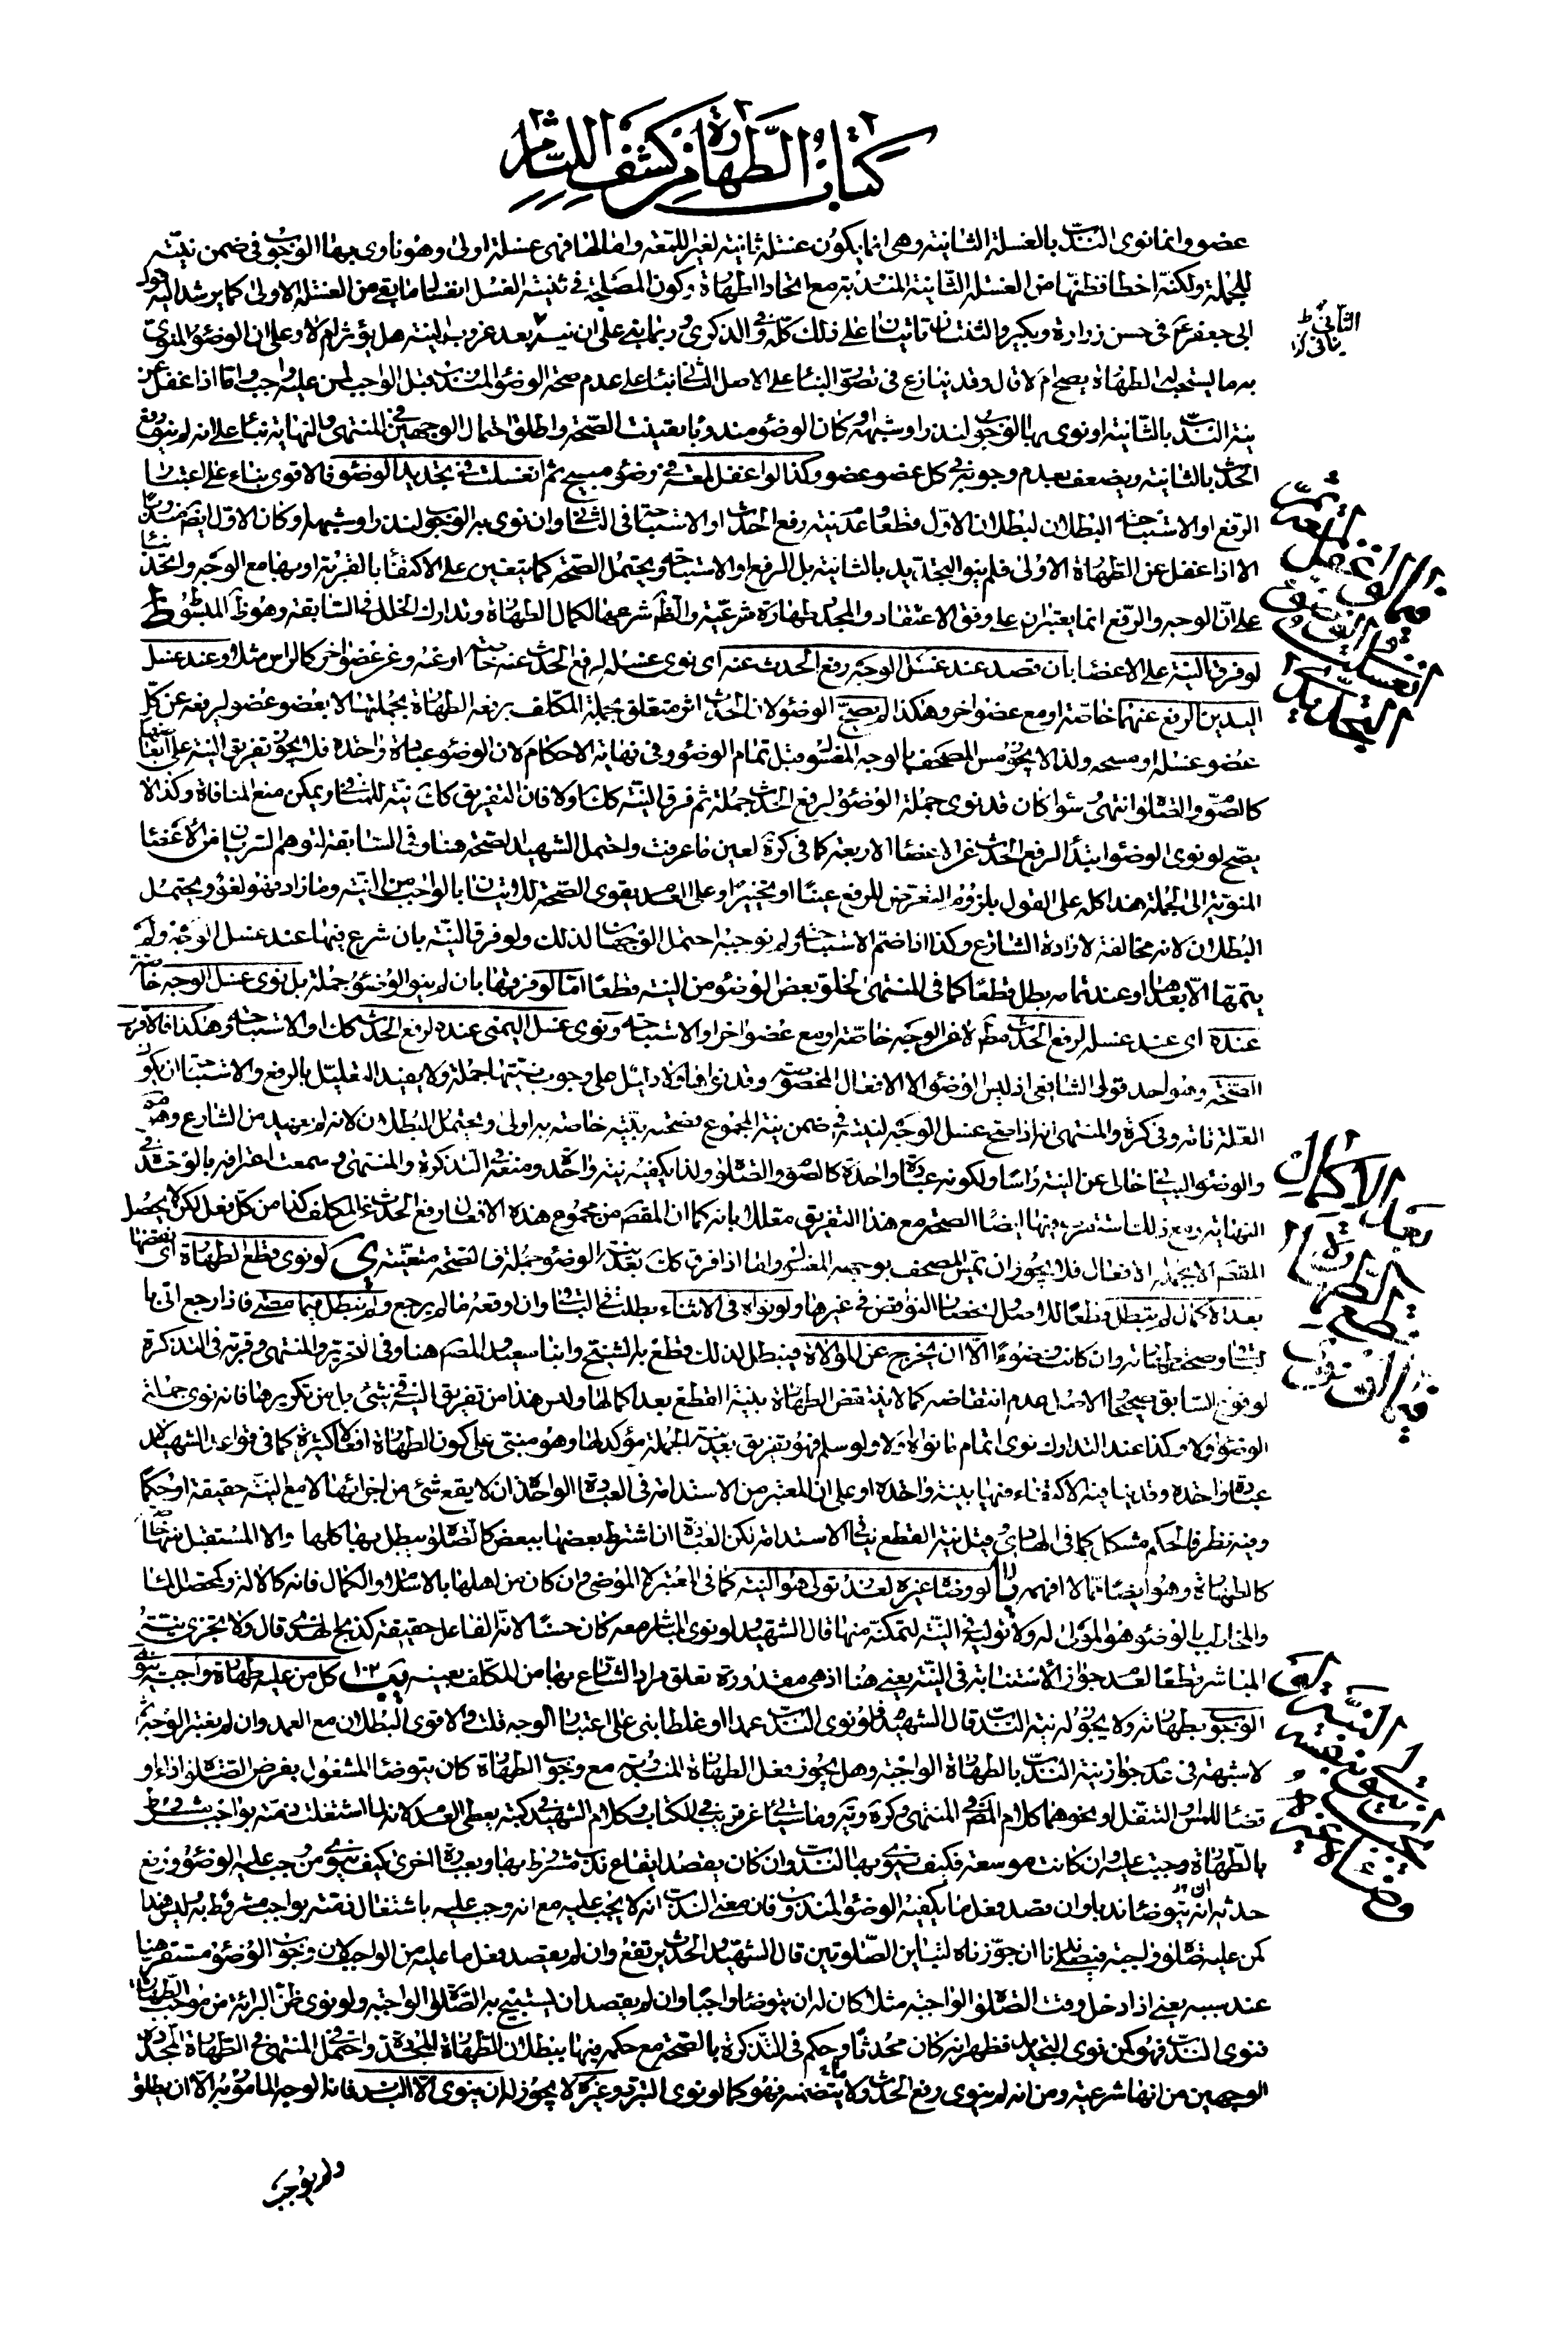 كتاب الطهارة من كشف اللثام
عضو وانما نوى الندب بالغسلة الثانية وهي انما يكون غسلة ثانية لغير اللمعة واما لها فهي غسلة اولى وهو ناوى بها الوجوب في ضمن نيته
للجملة ولكنه اخطا فظنها من الغسلة الثانية المندوبة مع اتحاد الطهارة وكون المصلحة في تثنية الغسل انغسال ما بقى من الغسلة الاولى كما يرشد اليه قول
ابى جعفر ع في حسن زرارة وبكير والثنتان تاتيان على ذلك كله وفى الذكرى وربما بنى على ان نية بعد عزوب النية هل يؤثر ام لا وعلى ان الوضوء المنوى
به ما يستحب له الطهارة يصح ام لا قال وقد ينازع في تصور البناء على الاصل الثاني بناء على عدم صحة الوضوء المندوب قبل الواجب لمن عليه واجب واما اذا غفل عن
نية الندب بالثانية او نوى بها الوجوب لنذر او شبهه او كان الوضوء مندوبا تعينت الصحة واطلق احتمال الوجهين في المنتهى والنهاية بناء على انه لم ينو رفع
الحدث بالثانية ويضعف بعدم وجوبه في كل عضو عضو وكذا لو اغفل لمعة في وضوء مبيح ثم انغسلت في تجديد الوضوء فالاقوى بناء على اعتبار
الرفع او الاستباحة البطلان لبطلان الاول قطعا وعدم نية رفع الحدث او الاستباحة في الثاني وان نوى به الوجوب لنذر او شبهه وكان الاول ايضا مندوبا
الا اذا غفل عن الطهارة الاولى فلم ينو التجديد بالثانية بل الرفع او الاستباحة ويحتمل الصحة كما يتعين على الاكتفاء بالقربة او بها مع الوجه واتحدا بناء
على ان الوجه والرفع انما يعتبران على وفق الاعتقاد والمجدد طهارة شرعية والظاهر شرعها لكمال الطهارة وتدارك الخلل في السابقة وهو ظاهر المبسوط
لو فرق النية على الاعضاء بان قصد عند غسل الوجه رفع الحدث عنه اى نوى غسله لرفع الحدث عنه خاصة او عنه وعن عضو اخر كالراس مثلا وعند غسل
اليدين الرفع عنهما خاصة او مع عضو اخر وهكذا لم يصح الوضوء لان الحدث اثر متعلق بجملة المكلف يرفعه الطهارة بجملتها لا بعضو عضو ليرفعه عن كل
عضو غسله او مسحه ولذا لا يجوز مس المصحف بالوجه المغسول قبل تمام الوضوء وفي نهاية الاحكام لان الوضوء عبادة واحدة فلا يجوز تفريق النية على ابعاضها
كالصوم والصلوة انتهى سواء كان قد نوى جملة الوضوء لرفع الحدث جملة ثم فرق النية كذلك اولا فان التفريق كذلك نية للمنافي ويمكن منع المنافاة وكذا لا
يصح لو نوى الوضوء ابتداء لرفع الحدث عن الاعضاء الاربعة كما في كرة لعين ما عرفت واحتمل الشهيد الصحة هنا وفي السابقة لتوهم السريان من الاعضاء
المنوية الى الجملة هذا كله على القول بلزوم التعرض للرفع عينا او تخييرا وعلى العدم يقوى الصحة للاتيان بالواجب من النية وما زاد فهو لغو ويحتمل
البطلان لانه مخالفة لارادة الشارع وكذا اذا ضم الاستباحة ولم نوجبه احتمل الوجهان لذلك ولو فرق النية بان شرع فيها عند غسل الوجه ولم
يتمها الا بعدها او عند تمامه بطل قطعا كما في المنتهى لخلو بعض الوضوء من النية قطعا اما لو فرقها بان لم ينو الوضوء جملة بل نوى غسل الوجه خاصة
عنده اى عند غسله لرفع الحدث مطلقا لا عن الوجه خاصة او مع عضو اخر او الاستباحة ونوى غسل اليمنى عنده لرفع الحدث كذلك او الاستباحة وهكذا فالاقرب
الصحة وهو احد قولى الشافعي اذ ليس الوضوء الا الافعال المخصوصة وقد نواها ولا دليل على وجوب نيتها جملة ولا يفيد التعليل بالرفع والاستباحة ان يكون
العلة تامة وفى كرة والمنتهى انه اذا صح غسل الوجه لنيته في ضمن نية المجموع فصحته بنية خاصة به اولى ويحتمل البطلان لانه لم يعهد من الشارع وهو
والوضوء البياني خالى عن النية راسا ولكونه عبادة واحدة كالصوم والصلوة ولذا يكفيه نية واحدة ومنعه في التذكرة والمنتهى وسمعت اعترافه بالوحدة في
النهاية ومع ذلك استقرب فيها ايضا الصحة مع هذا التفريق معللا بانه كما ان المقصود من مجموع هذه الافعال رفع الحدث عن المكلف كذا من كل فعل لكن لا يحصل
المقصود الا بجملة الافعال فلا يجوز ان تمس المصحف بوجهه المغسول واما اذا فرق كذلك بعد نية الوضوء جملة فالصحة متعينة ى لو نوى قطع الطهارة اى نقضها
بعد الاكمال لم يبطل قطعا للاصل وانحصار النواقض في غيرها ولو نواه في الاثناء بطلت في الباقي وان اوقعه ما لم يرجع ولم تبطل فيما مضى فاذا رجع اتى بما
بقى وصحت طهارته وان كانت وضوءا الا ان يخرج عن الموالاة فيبطل لذلك قطع به الشيخ وابنا سعيد والمصنف هنا وفى التحرير والمنتهى وقربه في التذكرة
لوقوع السابق صحيحا والاصل عدم انتقاضه كما لا ينتقض الطهارة بنية القطع بعد اكمالها وليس هذا من تفريق النية في شئ باين تكريرها فانه نوى جملة
الوضوء اولا وكذا عند التدارك نوى اتمام ما نواه اولا ولو سلم فهو تفريق بعد نية الجملة مؤكد لها وهو مبنى على كون الطهارة افعالا كثيرة كما في قواعد الشهيد لا
عبادة واحدة وقد ينافيه الاكتفاء فيها بنية واحدة او على ان المعتبر من الاستدامة في العبادة الواحدة ان لا يقع شئ من اجزائها الا مع النية حقيقة او حكما
وفيه نظر فالحكم مشكل كما في الهادى وقيل نية القطع ينافي الاستدامة لكن العبادة ان اشترط بعضها ببعض كالصلوة بطل بها كلها والا المستقبل منها خاصة
كالطهارة وهو ايضا مما لا افهمه يا لو وضاه غيره لعذر تولى هو النية كما في المعتبر لا الموضى وان كان من اهلها بالاسلام والكمال فانه كالالة ولحصول المشاق
والمخاطب بالوضوء هو المؤتى له ولا تولية في النية لتمكنه منها قال الشهيد ولو نوى المباشر معه كان حسنا لانه الفاعل حقيقة كذبح الهدى قال ولا يجزى نية
المباشر قطعا لعدم جواز الاستنابة في النية يعنى هنا اذ هي مقدورة تعلق مراد الشارع بها من المكلف بعينه يب كل من عليه طهارة واجبة ينوى
الوجوب بطهارته ولا يجوز له نية الندب قال الشهيد فلو نوى الندب عمدا او غلطا بنى على اعتبار الوجه قلت والاقوى البطلان مع العمد وان لم يعتبر الوجه ثم
لا شبهة في عدم جواز نية الندب بالطهارة الواجبة وهل يجوز فعل الطهارة المندوبة مع وجوب الطهارة كان يتوضا المشغول بفرض الصلوة اداء او
قضاء للمس او التنفل او نحوهما كلام المصنف في المنتهى وكرة وية وما سياتى عن قريب في الكتاب وكلام الشهيد في كتبه يعطى العدم لانه لما اشتغلت ذمته بواجب مشروط
بالطهارة وجبت عليه وان كانت موسعة فكيف ينوى بها الندب وان كان يقصد ايقاع ندب مشروط بها وبعبارة اخرى كيف ينوى من وجب عليه الوضوء ورفع
حدثه انه يتوضا ندبا وان قصد فعل ما يكفيه الوضوء المندوب فان معنى الندب انه لا يجب عليه مع انه وجب عليه باشتغال ذمته بواجب مشروط به ليس هذا
كمن عليه صلوة واجبة فيصلى نافلة ان جوزناه لتباين الصلوتين قال الشهيد والحدث يرتفع وان لم يقصد فعل ما عليه من الواجب لان وجوب الوضوء مستقر هنا
عند سببه يعنى اذا دخل وقت الصلوة الواجبة مثلا كان له ان يتوضا واجبا وان لم يقصد ان يستبيح به الصلوة الواجبة ولو نوى ظان البرائة من موجب الطهارة
فنوى الندب فهو كمن نوى التجديد فظهر انه كان محدثا وحكم في التذكرة بالصحة مع حكمه فيها ببطلان الطهارة المجددة واحتمل في المنتهى في الطهارة المجددة
الوجهين من انها شرعية ومن انه لم ينوى رفع الحدث ولا ما يتضمنه فهو كما لو نوى التبرد وغيره لا يجوز له ان ينوى الا الندب فانه الوجه المامور به الا ان يطلق
ولم يوجب